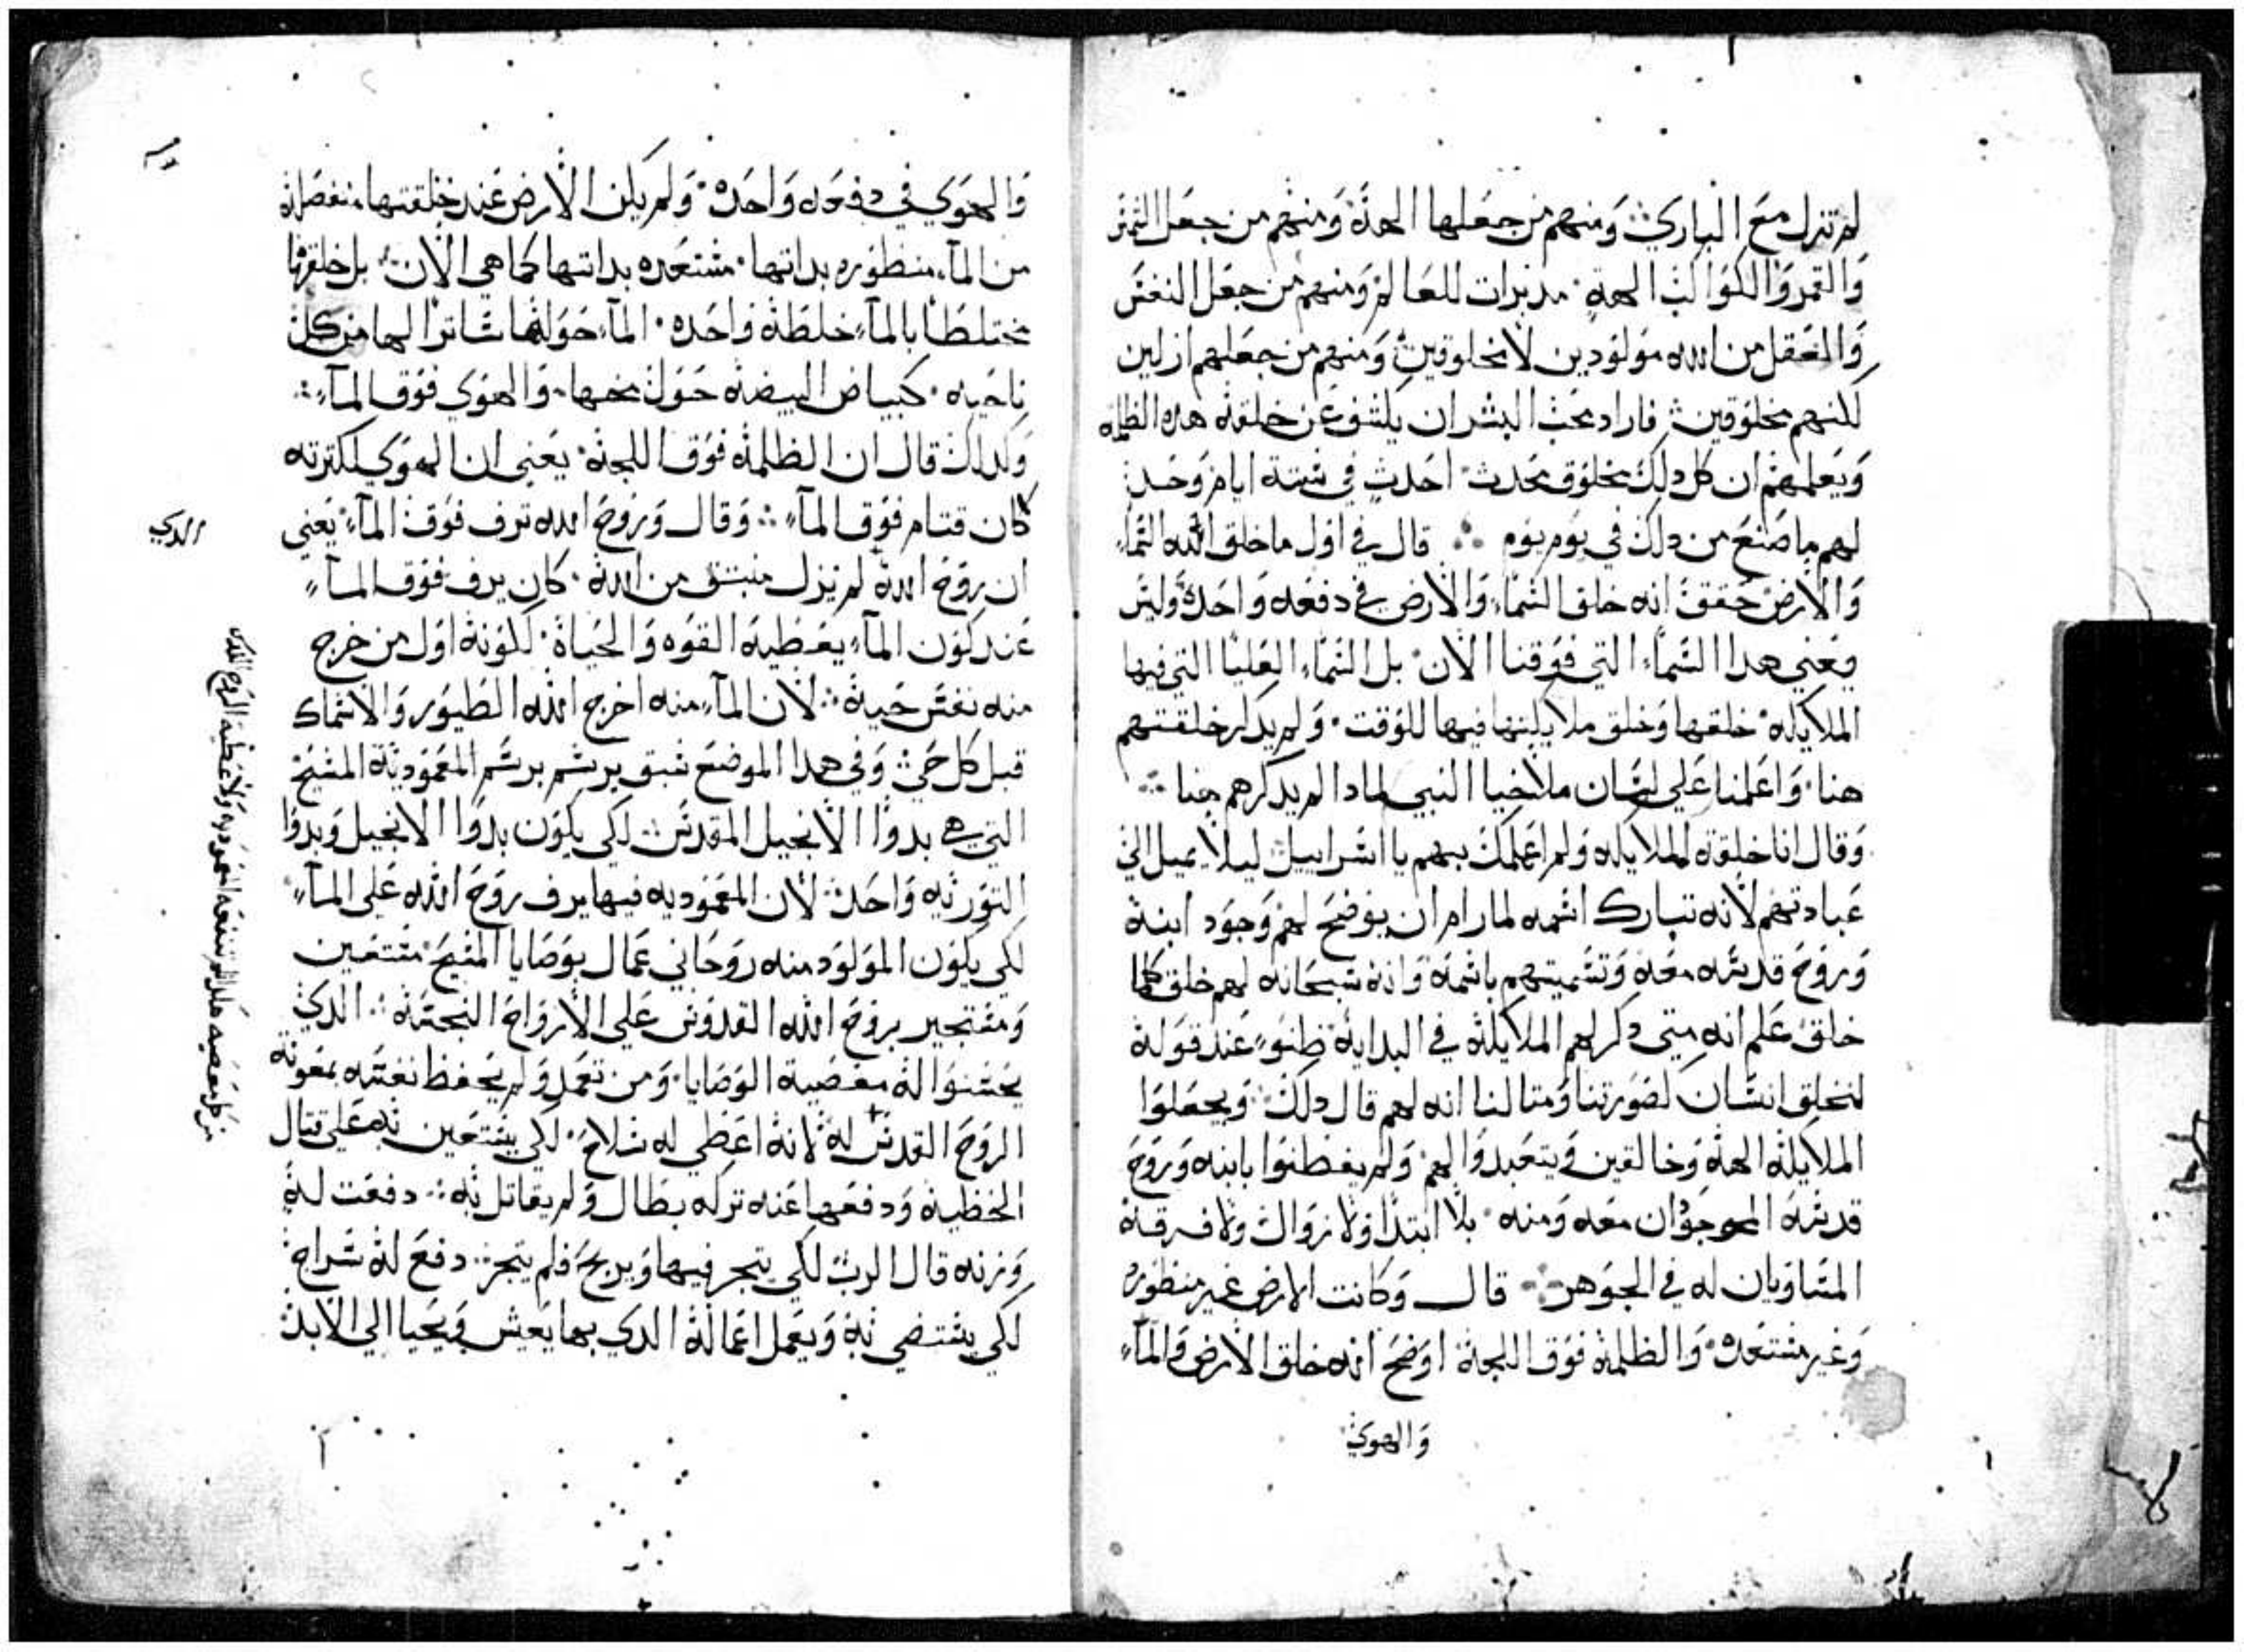 لم تزل مع الباري ومنهم من جعلها الهة ومنهم من جعل الشمس
والقمر والكواكب الهة مدبرات للعالم ومنهم من جعل النفس
والعقل من الله مولودين لا مخلوقين ومنهم من جعلهم ازليين
لكنهم مخلوقين فاراد محب البشر ان يكشف عن خلقة هده الظلمه
ويعلمهم ان كل دلك مخلوق محدث احدث في ستة ايام وحد
لهم ما صنع من دلك في يوم يوم قال في اول ما خلق الله السماء
والارض حقق انه خلق السماء والارض في دفعه واحدة وليس
يعني هدا السماء التي فوقنا الان بل السماء العليا التي فيها
الملايكه خلقها وخلق ملايكتها فيها للوقت ولم يدكر خلقتهم
هنا واعلمنا على لسان ملاخيا النبي لمادا لم يدكرهم هنا
وقال انا خلقة الملايكه ولم اعلمك بهم يا اسراييل ليلا تميل الى
عبادتهم لانه تبارك اسمه لما رام ان يوضح لهم وجود ابنه
وروح قدسه معه وتسميتهم باسمه وانه سبحانه لهم خلق كلما
خلق علم انه متى دكر لهم الملايكه في البدايه ظنوا عند قوله
لنخلق انسان لصورتنا ومتالنا انه لهم قال دلك ويجعلوا
الملايكه الهة وخالقين ويتعبدوا لهم ولم يفطنوا بابنه وروح
قدسه الموجودان معه ومنه بلا ابتدا ولا زوال ولا فرقه
المتساويان له في الجوهر قال وكانت الارض غير منظوره
وغير مستعده والظلمة فوق اللجة اوضح انه خلق الارض والماء
والهوي
والهوي في دفعه واحده ولم يكن الارض عند خلقتها منفصله
من الماء منظوره بداتها مستعده بداتها كما هي الان بل خلقها
مختلطا بالماء خلطة واحده الماء حولها ساترا لها من كل
ناحيه كبياض البيضه حول محها والهوي فوق الماء
وكداك قال ان الظلمه فوق اللجة يعني ان الهوي لكترته
كان قتام فوق الماء وقال وروح الله ترف فوق الماء يعني
ان روح الله لم يزل منبتق من الله كان يرف فوق الماء
عند كون الماء يعطيه القوه والحياة لكونه اول من خرج
منه نفس حية لان الماء منه اخرج الله الطيور والاسماك
قبل كل حي وفي هدا الموضع سبق يرسم برسم المعمودية المسيح
التي هي بدوا الانجيل المقدس لكي يكون بدوا الانجيل وبدوا
التوريه واحد لان المعموديه فيها يرف روح الله على الماء
لكي يكون المولود منه روحاني عمال بوصايا المسيح مستعين
ومستجير بروح الله القدوس على الارواح النجسة الدي
يحسنوا له معصية الوصايا ومن تعمد ولم يحفظ نفسه بمعونة
الروح القدس له لانه اعطي له سلاح لكي يستعين به على قتال
الخطيه ودفعها عنه تركه بطال ولم يقاتل به دفعت له
وزنه قال الرب لكي يتجر فيها ويربح فلم يتجر دفع له سراج
لكي يستضي به ويعمل اعماله الدي بها يعش ويحيا الى الابد
الدي